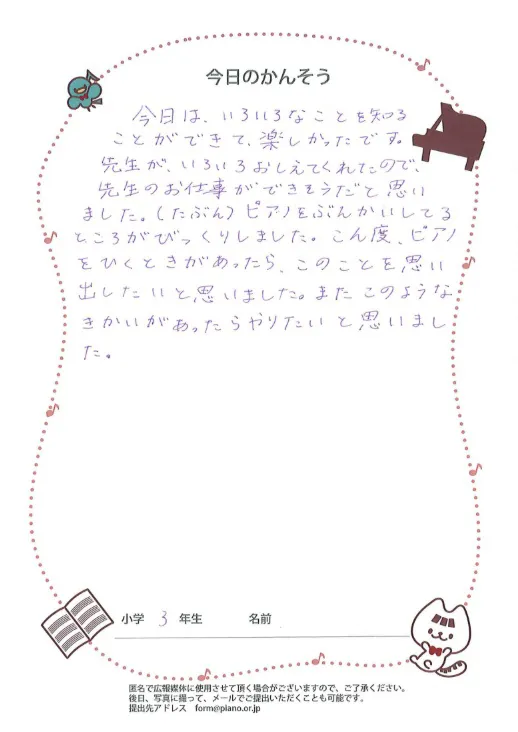 今日のかんそう
今日は、いろいろなことを知る
ことができて、楽しかったです。
先生が、いろいろおしえてくれたので、
先生のお仕事ができそうだと思い
ました。(たぶん)ピアノをぶんかいしてる
ところがびっくりしました。こん度、ピアノ
をひくときがあったら、このことを思い
出したいと思いました。またこのような
きかいがあったらやりたいと思いまし
た。
小学 3 年生 名前
匿名で広報媒体に使用させて頂く場合がございますので、ご了承ください。
後日、写真に撮って、メールでご提出いただくことも可能です。
提出先アドレス form@piano.or.jp